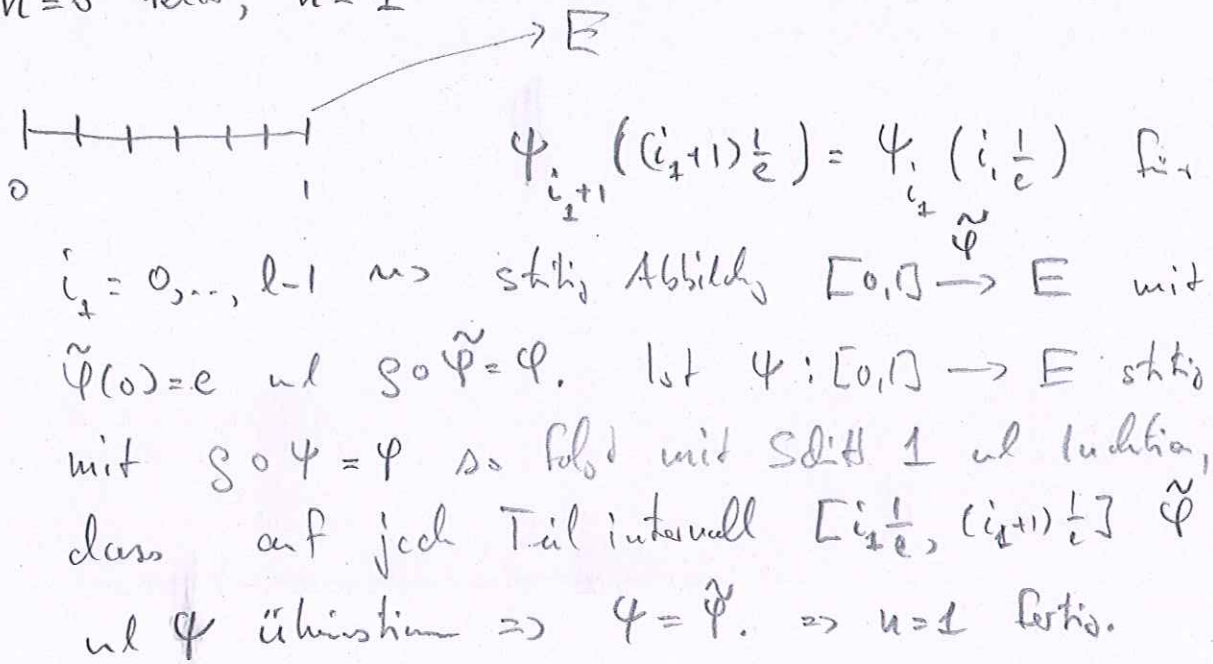 n=0
→ E
0 1
ψ_{i_1+1}((i_1+1)\frac{1}{e}) = ψ_{i_1}(i_1\frac{1}{e}) für
i_1 = 0,..., l-1 ⇝ stetig Abbildg [0,1] \xrightarrow{\tilde{φ}} E mit
\tilde{φ}(0)=e und ρ∘\tilde{φ}=φ. Ist ψ:[0,1] → E stetig
mit ρ∘ψ=φ so folgt mit Schritt 1 und Induktion,
dass auf jedem Teilintervall [i_1\frac{1}{e}, (i_1+1)\frac{1}{e}] \tilde{φ}
und ψ übereinstimmen => ψ=\tilde{φ}. => n=1 fertig.